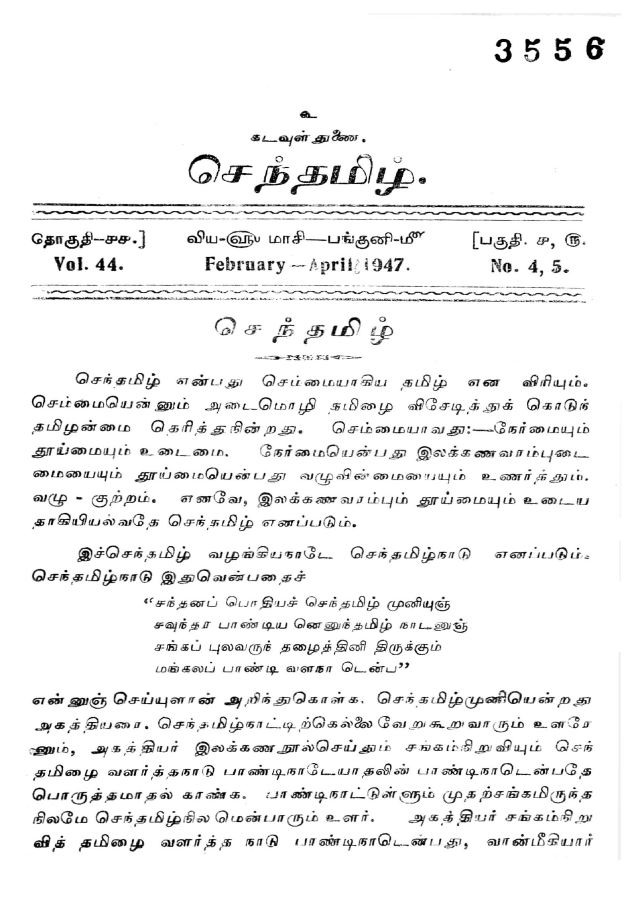 3556
உ
கடவுள் துணை.
செந்தமிழ்.
தொகுதி—௪௪.] விய-௵ மாசி—பங்குனி-௴ [பகுதி. ௪, ௫.
Vol. 44. February—April 1947. No. 4, 5.
செந்தமிழ்
செந்தமிழ் என்பது செம்மையாகிய தமிழ் என விரியும்.
செம்மையென்னும் அடைமொழி தமிழை விசேடித்துக் கொடுந்
தமிழன்மை தெரித்துநின்றது. செம்மையாவது:—நேர்மையும்
தூய்மையும் உடைமை. நேர்மையென்பது இலக்கணவரம்புடை
மையையும் தூய்மையென்பது வழுவின்மையையும் உணர்த்தும்.
வழு - குற்றம். எனவே, இலக்கணவரம்பும் தூய்மையும் உடைய
தாகியியல்வதே செந்தமிழ் எனப்படும்.
இச்செந்தமிழ் வழங்கியநாடே செந்தமிழ்நாடு எனப்படும்.
செந்தமிழ்நாடு இதுவென்பதைச்
“சந்தனப் பொதியச் செந்தமிழ் முனியுஞ்
சவுந்தர பாண்டிய னெனுந்தமிழ் நாடனுஞ்
சங்கப் புலவருந் தழைத்தினி திருக்கும்
மங்கலப் பாண்டி வளநா டென்ப”
என்னுஞ் செய்யுளான் அறிந்துகொள்க. செந்தமிழ்முனியென்றது
அகத்தியரை. செந்தமிழ்நாட்டிற்கெல்லைவேறுகூறுவாரும் உளரே
னும், அகத்தியர் இலக்கணநூல்செய்தும் சங்கம்நிறுவியும் செந்
தமிழை வளர்த்தநாடு பாண்டிநாடேயாதலின் பாண்டிநாடென்பதே
பொருத்தமாதல் காண்க. பாண்டிநாட்டுள்ளும் முதற்சங்கமிருந்த
நிலமே செந்தமிழ்நில மென்பாரும் உளர். அகத்தியர் சங்கம்நிறு
வித் தமிழை வளர்த்த நாடு பாண்டிநாடென்பது, வான்மீகியார்